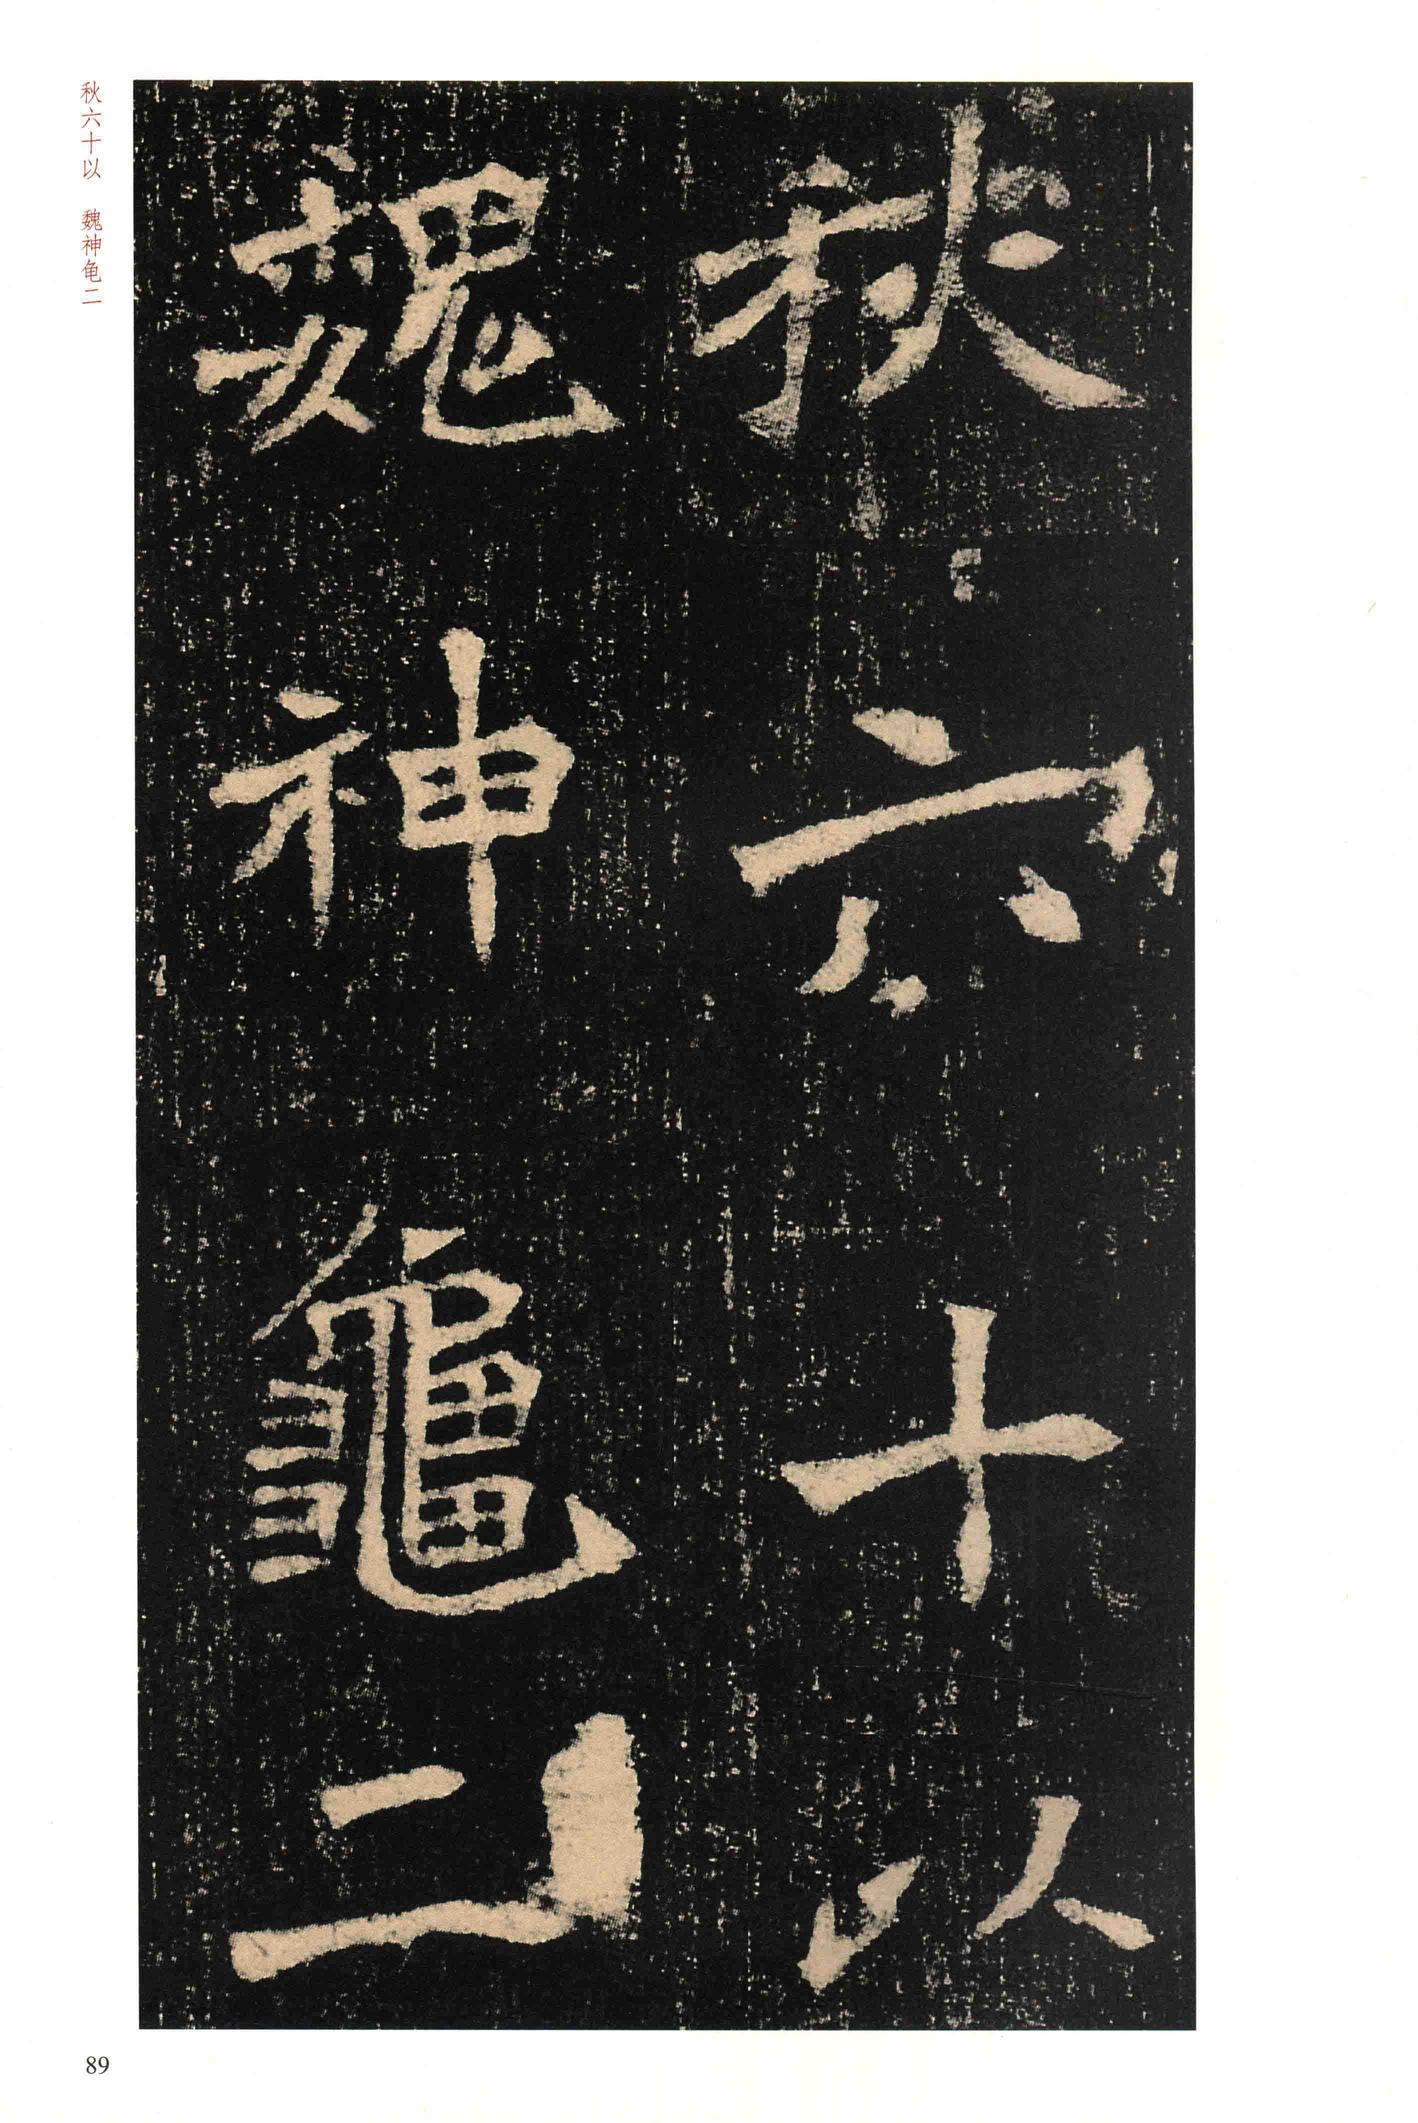 秋六十以
魏神龜二
秋六十以 魏神龟二
89